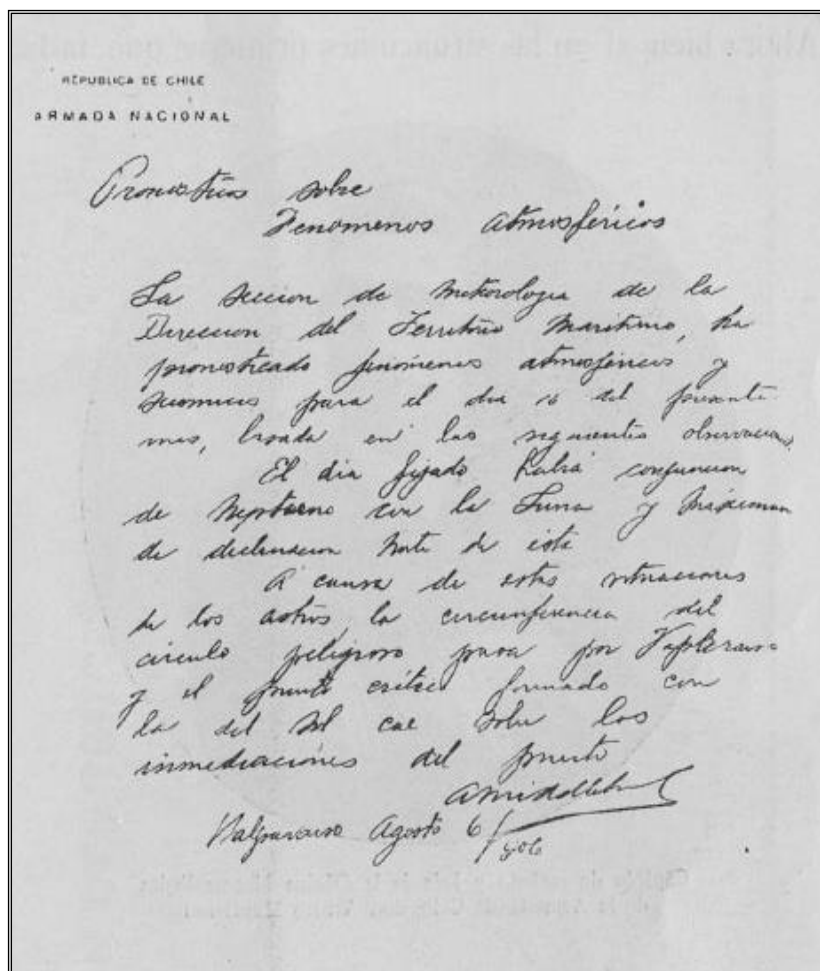 REPUBLICA DE CHILE
ARMADA NACIONAL
Pronosticos sobre
Fenomenos atmosféricos
La Seccion de Meteorologia de la
Direccion del Territorio Maritimo, ha
pronosticado fenómenos atmosféricos y
sismicos para el dia 16 del presente
mes, basada en las siguientes observaciones.
El dia fijado habrá conjuncion
de Neptuno con la Luna y máximum
de declinacion Norte de ésta
A causa de estas situaciones
de los astros, la circunferencia del
círculo peligroso pasa por Valparaiso
y el punto crítico formado con
la del Sol cae sobre las
inmediaciones del puerto
Valparaiso Agosto 6/906